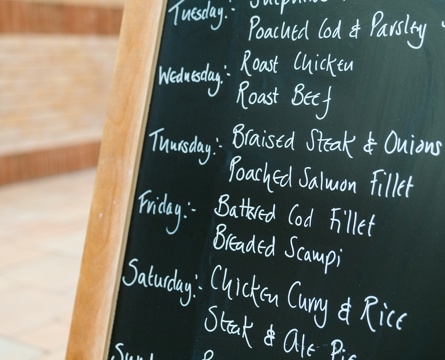 Tuesday:-
Poached Cod & Parsley
Wednesday:- Roast Chicken
Roast Beef
Thursday:- Braised Steak & Onions
Poached Salmon Fillet
Friday:- Battered Cod Fillet
Breaded Scampi
Saturday:- Chicken Curry & Rice
Steak & Ale Pie